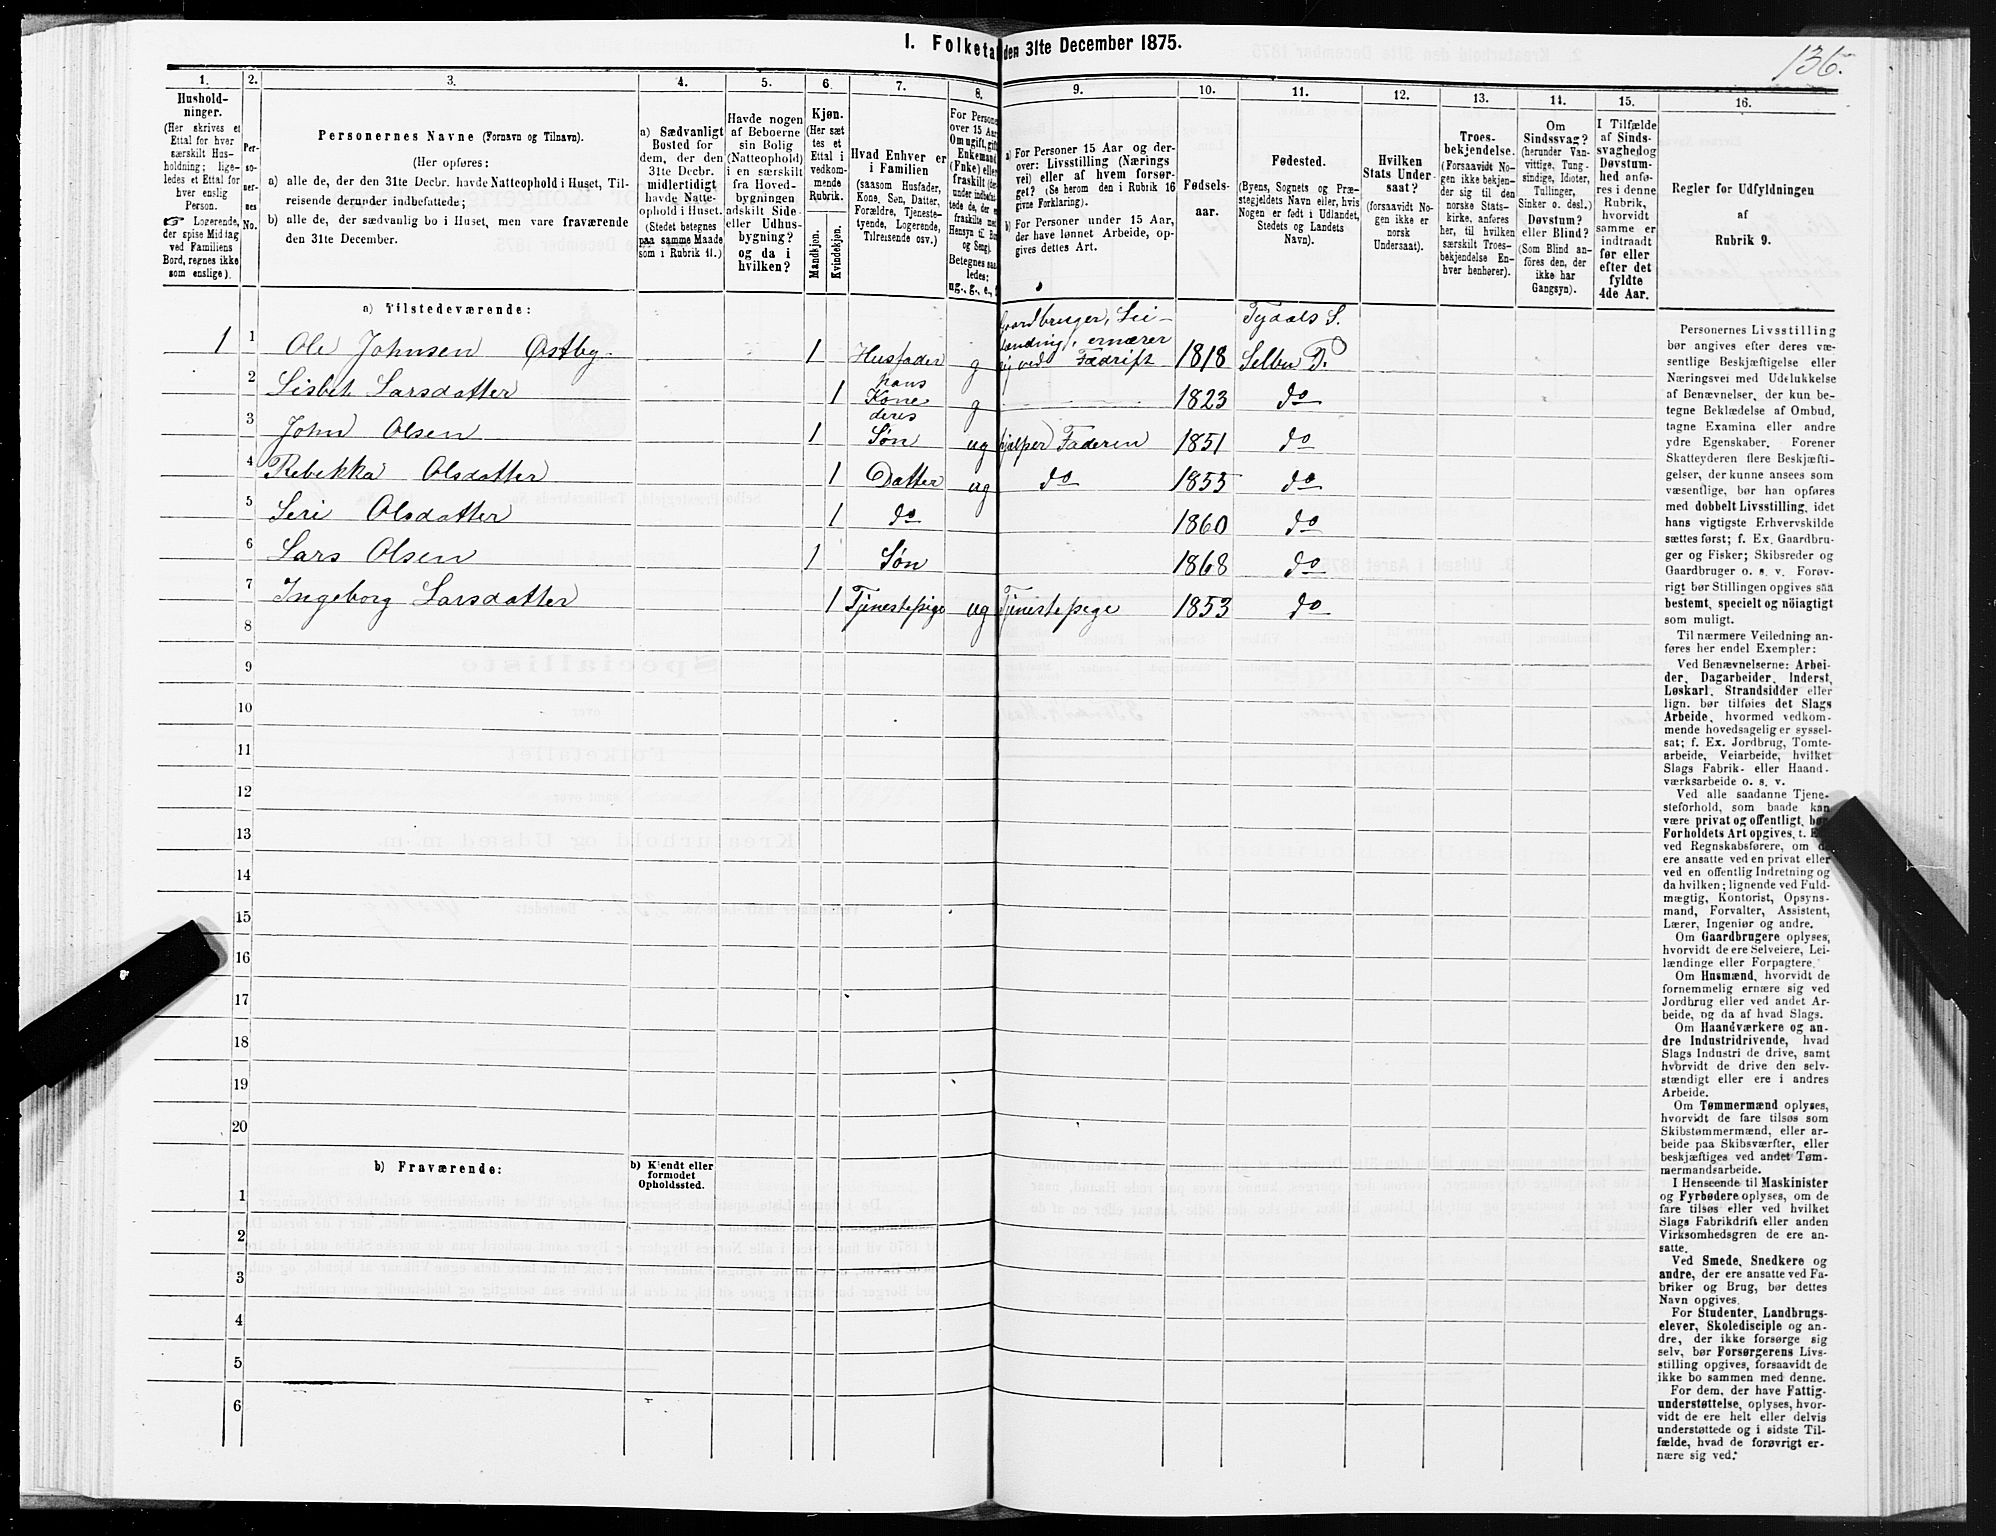 I. Folketal den 31te December 1875.
136.
1.
2.
3.
4.
5.
6.
7.
8.
9.
10.
11.
12.
13.
14.
15.
16.
Hushold-
ninger.
(Her skrives et
Ettal for hver
særskilt Hus-
holdning; lige-
ledes et Ettal for
hver enslig
Person.
☞ Logerende,
der spise Middag
ved Familiens
Bord, regnes ikke
som enslige).
Per-
so-
ner-
nes
No.
Personernes Navne (Fornavn og Tilnavn).
(Her opføres:
a) alle de, der den 31te Decbr. havde Natteophold i Huset, Til-
reisende derunder indbefattede;
b) alle de, der sædvanlig bo i Huset, men vare fraværende
den 31te December.
a) Sædvanligt
Bosted for
dem, der den
31te Decbr.
midlertidigt
havde Natte-
ophold i Huset.
(Stedet betegnes
paa samme Maade
som i Rubrik 11.)
Havde nogen
af Beboerne
sin Bolig
(Natteophold)
i en særskilt
fra Hoved-
bygningen
adskilt Side-
eller Udhus-
bygning?
og da i
hvilken?
Kjøn.
(Her sæt
tes et
Ettal i
vedkom-
mende
Rubrik.
Mandkjøn.
Kvindekjøn.
Hvad Enhver er
i Familien
(saasom Husfader,
Kone, Søn, Datter,
Forældre, Tjeneste-
tyende, Logerende,
Tilreisende osv.)
For Persone
over 15 Aar
Om ugift, gift
Enkemand
(Fnke) eller
fraskilt (de
under indbefat-
tede de, der e
fraskilte med
Hensyn til Bo
og Seng).
Betegnes saa
ledes:
ug., g., e., f.
a) For Personer 15 Aar og der-
over: Livsstilling (Nærings
vei) eller af hvem forsør-
get? (Se herom den i Rubrik 16
givne Forklaring).
b) For Personer under 15 Aar,
der have lønnet Arbeide, op-
gives dettes Art.
Fødsels-
aar.
Fødested.
(Byens, Sognets og Præ-
stegjeldets Navn eller, hvis
Nogen er født i Udlandet,
Stedets og Landets
Navn).
Hvilken
Stats Under-
saat?
(forsaavidt No-
gen ikke er
norsk
Undersaat).
Troes-
bekjendelse.
(Forsaavidt No-
gen ikke bekjen-
der sig til den
norske Stats-
kirke, anføres
her, til hvilken
særskilt Troes-
bekjendelse En-
hver henhører).
Om
Sindssvag?
(herunder Van-
vittige, Tung-
sindige, Idioter,
Tullinger,
Sinker o. desl.)
Døvstum?
eller Blind?
(Som Blind an-
føres den, der
ikke har
Gangsyn).
I Tilfælde
af Sinds-
svaghed og
Døvstum-
hed anfø-
res i denne
Rubrik,
hvorvidt
samme er
indtraadt
før eller
efter det
fyldte
4de Aar.
Regler for Udfyldningen
af
Rubrik 9.
a) Tilstedeværende:
1 1 Ole Johnsen Østby. 1 Husfader g Gaardbruger, Lei-
lænding, ernærer
sig ved Fædrift 1818 Tydals S.
Selbu P.
2 Lisbet Larsdatter 1 hans
Kone g 1823 do
3 John Olsen 1 deres
Søn ug hjælper Faderen 1851 do
4 Rebekka Olsdatter 1 Datter ug do 1855 do
5 Siri Olsdatter 1 do 1860 do
6 Lars Olsen 1 Søn 1868 do
7 Ingeborg Larsdatter 1 Tjenestepige ug Tjenestepige 1853 do
8
9
10
11
12
13
14
15
16
17
18
19
20
b) Fraværende:
b) Kjendt eller
formodet
Opholdssted.
1
2
3
4
5
6
Personernes Livsstilling
bør angives efter deres væ-
sentlige Beskjæftigelse eller
Næringsvei med Udelukkelse
af Benævnelser, der kun be-
tegne Beklædelse af Ombud,
tagne Examina eller andre
ydre Egenskaber. Forener
Skatteyderen flere Beskjæfti-
gelser, der kunne ansees som
væsentlige, bør han opføres
med dobbelt Livsstilling, idet
hans vigtigste Erhvervskilde
sættes først; f. Ex. Gaardbru-
ger og Fisker; Skibsreder og
Gaardbruger o. s. v. Forøv-
rigt bør Stillingen opgives saa
bestemt, specielt og nöiagtigt
som muligt.
Til nærmere Veiledning an-
føres her endel Exempler:
Ved Benævnelserne: Arbei-
der, Dagarbeider, Inderst,
Løskarl, Strandsidder eller
lign. bør tilføies det Slags
Arbeide, hvormed vedkom-
mende hovedsagelig er syssel-
sat; f. Ex. Jordbrug, Tomte-
arbeide, Veiarbeide, hvilket
Slags Fabrik- eller Haand-
værksarbeide o. s. v.
Ved alle saadanne Tjene-
steforhold, som baade kan
være privat og offentligt, bør
Forholdets Art opgives, t. Ex.
ved Regnskabsførere, om de
ere ansatte ved en privat eller
ved en offentlig Indretning og
da hvilken; lignende ved Fuld-
mægtig, Kontorist, Opsyns-
mand, Forvalter, Assistent,
Lærer, Ingeniør og andre.
Om Gaardbrugere oplyses,
hvorvidt de ere Selveiere, Lei-
lændinge eller Forpagtere.
Om Husmænd, hvorvidt de
fornemmelig ernære sig ved
Jordbrug eller ved andet Ar-
beide, og da af hvad Slags.
Om Haandværkere og an-
dre Industridrivende, hvad
Slags Industri de drive, samt
hvorvidt de drive den selv-
stændigt eller ere i andres
Arbeide.
Om Tømmermænd oplyses,
hvorvidt de fare tilsøs som
Skibstømmermænd, eller ar-
beide paa Skibsværfter, eller
beskjæftiges ved andet Tøm-
mermandsarbeide.
I Henseende til Maskinister
og Fyrbødere oplyses, om de
fare tilsøs eller ved hvilket
Slags Fabrikdrift eller anden
Virksomhedsgren de ere an-
satte.
Ved Smede, Snedkere og
andre, der ere ansatte ved Fa-
briker og Brug, bør dettes
Navn opgives.
For Studenter, Landbrugs-
elever, Skoledisciple og an-
dre, der ikke forsørge sig
selv, bør Forsørgerens Livs-
stilling opgives, forsaavidt de
ikke bo sammen med denne.
For dem, der have Fattig-
understøttelse, oplyses, hvor-
vidt de ere helt eller delvis
understøttede og i sidste Til-
fælde, hvad de forøvrigt er-
nære sig ved.